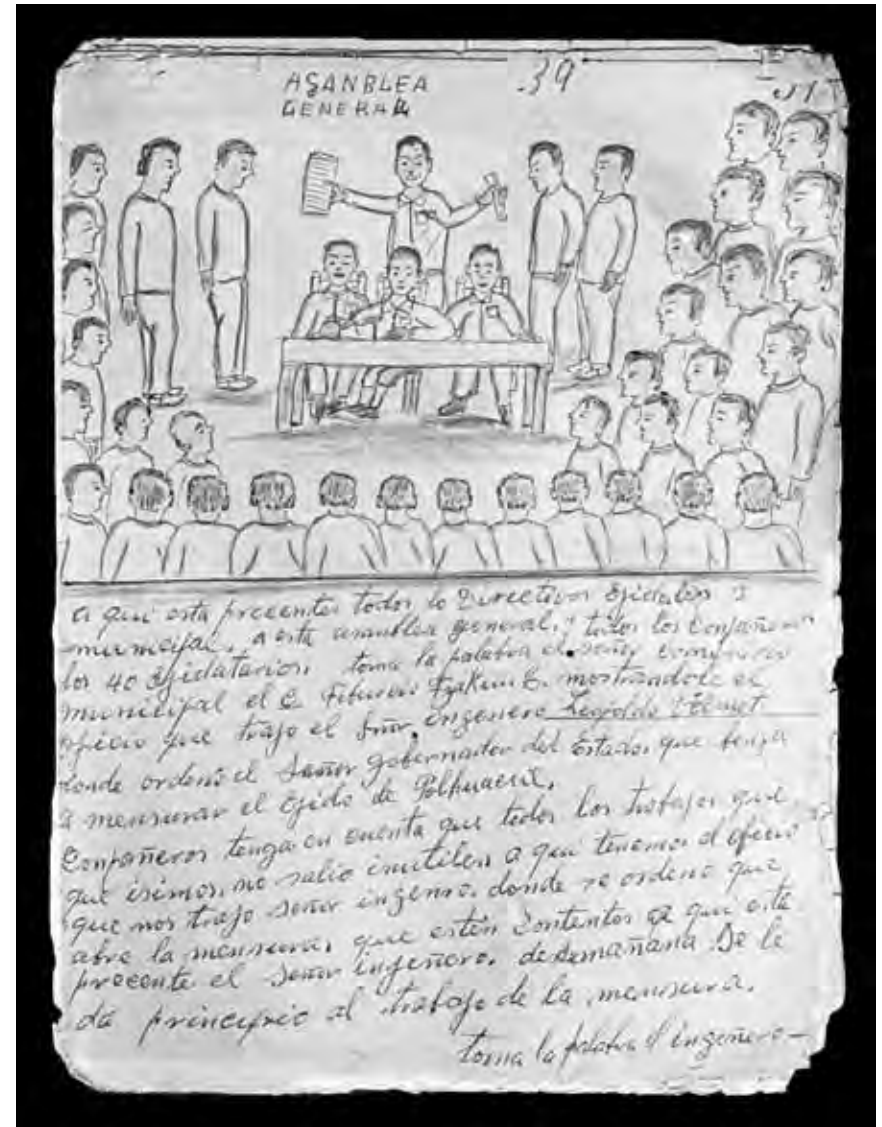 ASANBLEA
GENERAL
39
a qui esta precentes todos lo Directivos Ejidales y
municipal, a esta asamblea general, y todos los conpañeros
los 40 Ejidatarios. toma la palabra el señor comisario
municipal el C. mostrandole el
oficio que trajo el Sñr. ingenero Leopoldo
donde ordenó el Señor gobernador del Estado, que benga
a mensurar el Ejido de
Conpañeros tenga en cuenta que todos los trabajos que
que isimos, no salio inutiles a qui tenemos el oficio
que nos trajo señor ingenro. donde se ordenó que
abre la mensura, que estén Contentos a qui está
precente el Señor ingeñero. desde mañana Se le
da principio al trabajo de la mensura.
toma la palabra el ingeñero—